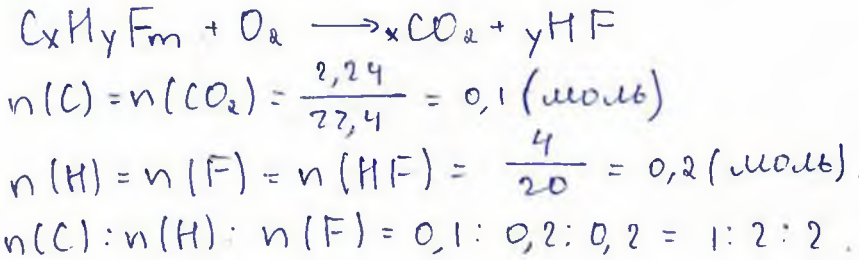 CxHyFm + O₂ → xCO₂ + yHF
n(C) = n(CO₂) = 2,24/22,4 = 0,1 (моль)
n(H) = n(F) = n(HF) = 4/20 = 0,2 (моль).
n(C) : n(H) : n(F) = 0,1 : 0,2 : 0,2 = 1 : 2 : 2.